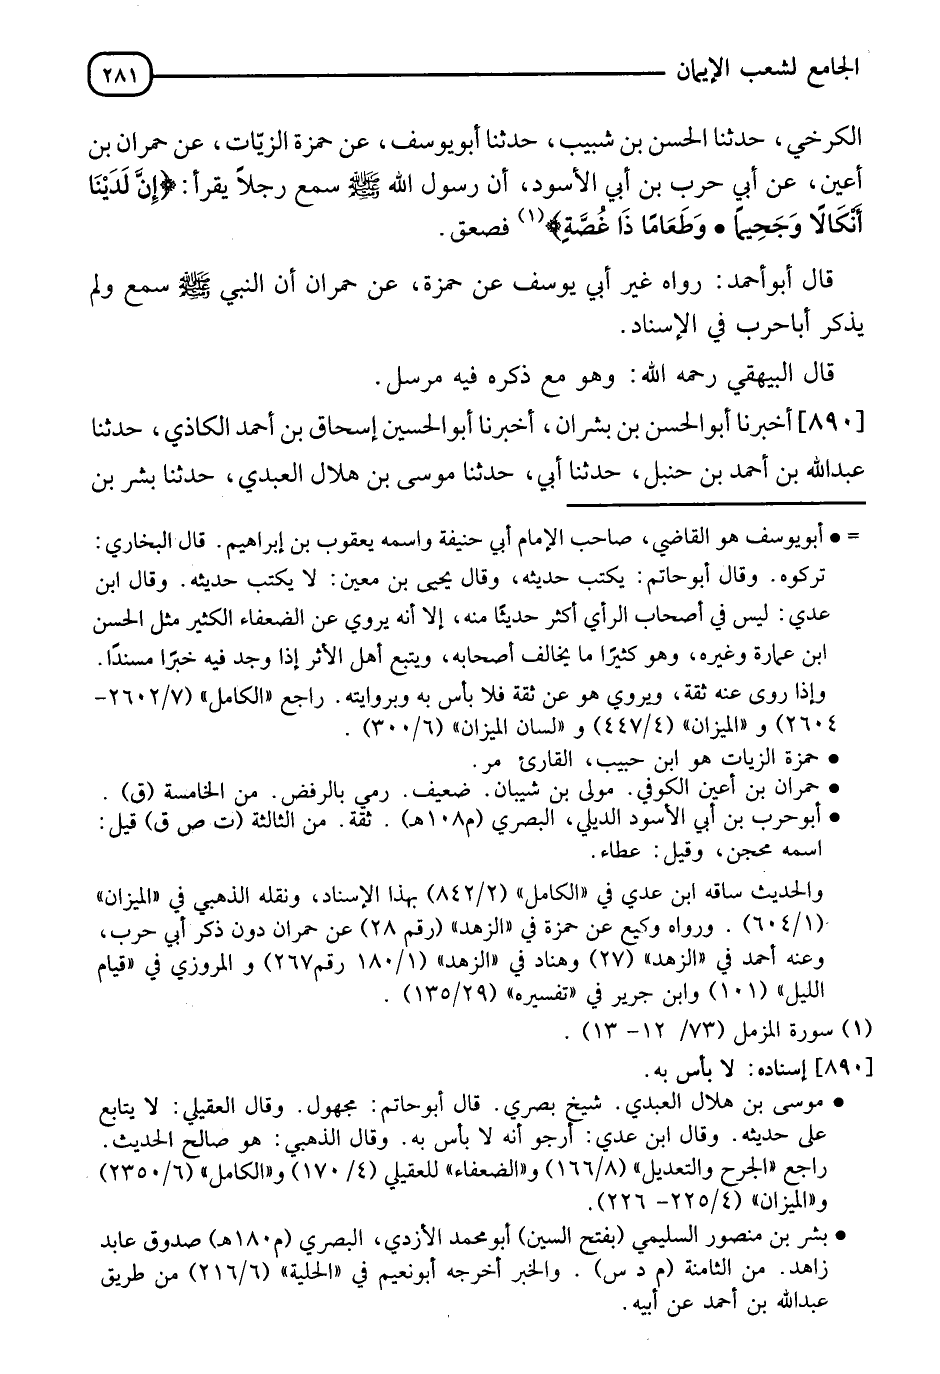 الجامع لشعب الإيمان ٢٨١
الكرخي، حدثنا الحسن بن شبيب، حدثنا أبويوسف، عن حمزة الزيّات، عن حمران بن
أعين، عن أبي حرب بن أبي الأسود، أن رسول الله ﷺ سمع رجلاً يقرأ: ﴿إِنَّ لَدَيْنَا
أَنْكَالًا وَجَحِيماً • وَطَعَامًا ذَا غُصَّةٍ﴾(١) فصعق.
قال أبوأحمد: رواه غير أبي يوسف عن حمزة، عن حمران أن النبي ﷺ سمع ولم
يذكر أباحرب في الإسناد.
قال البيهقي رحمه الله: وهو مع ذكره فيه مرسل.
[٨٩٠] أخبرنا أبوالحسن بن بشران، أخبرنا أبوالحسين إسحاق بن أحمد الكاذي، حدثنا
عبدالله بن أحمد بن حنبل، حدثنا أبي، حدثنا موسى بن هلال العبدي، حدثنا بشر بن
= • أبويوسف هو القاضي، صاحب الإمام أبي حنيفة واسمه يعقوب بن إبراهيم. قال البخاري:
تركوه. وقال أبوحاتم: يكتب حديثه، وقال يحيى بن معين: لا يكتب حديثه. وقال ابن
عدي: ليس في أصحاب الرأي أكثر حديثًا منه، إلا أنه يروي عن الضعفاء الكثير مثل الحسن
ابن عمارة وغيره، وهو كثيرًا ما يخالف أصحابه، ويتبع أهل الأثر إذا وجد فيه خبرًا مسندًا.
وإذا روى عنه ثقة، ويروي هو عن ثقة فلا بأس به وبروايته. راجع «الكامل» (٧/‏٢٦٠٢-
٢٦٠٤) و «الميزان» (٤/‏٤٤٧) و «لسان الميزان» (٦/‏٣٠٠).
• حمزة الزيات هو ابن حبيب، القارئ مر.
• حمران بن أعين الكوفي. مولى بن شيبان. ضعيف. رمي بالرفض. من الخامسة (ق).
• أبوحرب بن أبي الأسود الديلي، البصري (م١٠٨هـ). ثقة. من الثالثة (ت ص ق) قيل:
اسمه محجن، وقيل: عطاء.
والحديث ساقه ابن عدي في «الكامل» (٢/‏٨٤٢) بهذا الإسناد، ونقله الذهبي في «الميزان»
(١/‏٦٠٤). ورواه وكيع عن حمزة في «الزهد» (رقم ٢٨) عن حمران دون ذكر أبي حرب،
وعنه أحمد في «الزهد» (٢٧) وهناد في «الزهد» (١/‏١٨٠ رقم٢٦٧) و المروزي في «قيام
الليل» (١٠١) وابن جرير في «تفسيره» (٢٩/‏١٣٥).
(١) سورة المزمل (٧٣/ ١٢- ١٣).
[٨٩٠] إسناده: لا بأس به.
• موسى بن هلال العبدي. شيخ بصري. قال أبوحاتم: مجهول. وقال العقيلي: لا يتابع
على حديثه. وقال ابن عدي: أرجو أنه لا بأس به. وقال الذهبي: هو صالح الحديث.
راجع «الجرح والتعديل» (٨/‏١٦٦) و«الضعفاء» للعقيلي (٤/ ١٧٠) و«الكامل» (٦/‏٢٣٥٠)
و«الميزان» (٤/‏٢٢٥- ٢٢٦).
• بشر بن منصور السليمي (بفتح السين) أبومحمد الأزدي، البصري (م١٨٠هـ) صدوق عابد
زاهد. من الثامنة (م د س). والخبر أخرجه أبونعيم في «الحلية» (٦/‏٢١٦) من طريق
عبدالله بن أحمد عن أبيه.